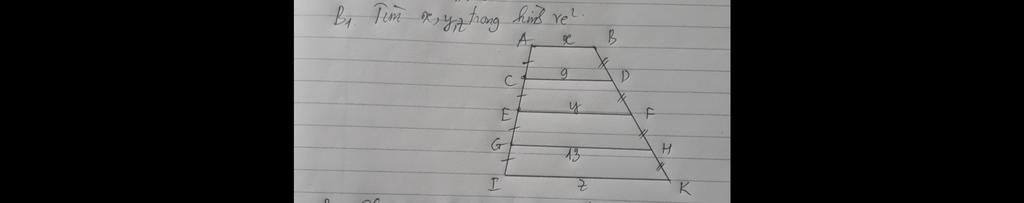 B1 Tìm x, y, z trong hình vẽ.
A x B
C 9 D
E y F
G 13 H
I z K